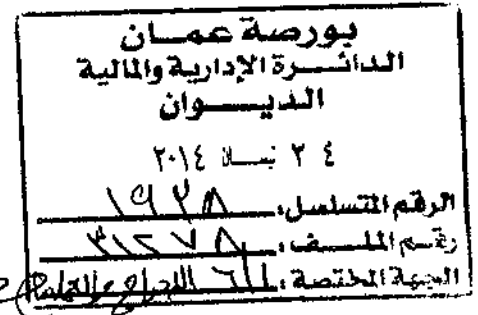 بورصة عمـــان
الدائـــرة الإدارية والمالية
الديـــوان
٢٤ نيسان ٢٠١٤
الرقم المتسلسل: ١٩٢٨
رقـم الملـــف: ٣١٢٧٨
الجهة المختصة: